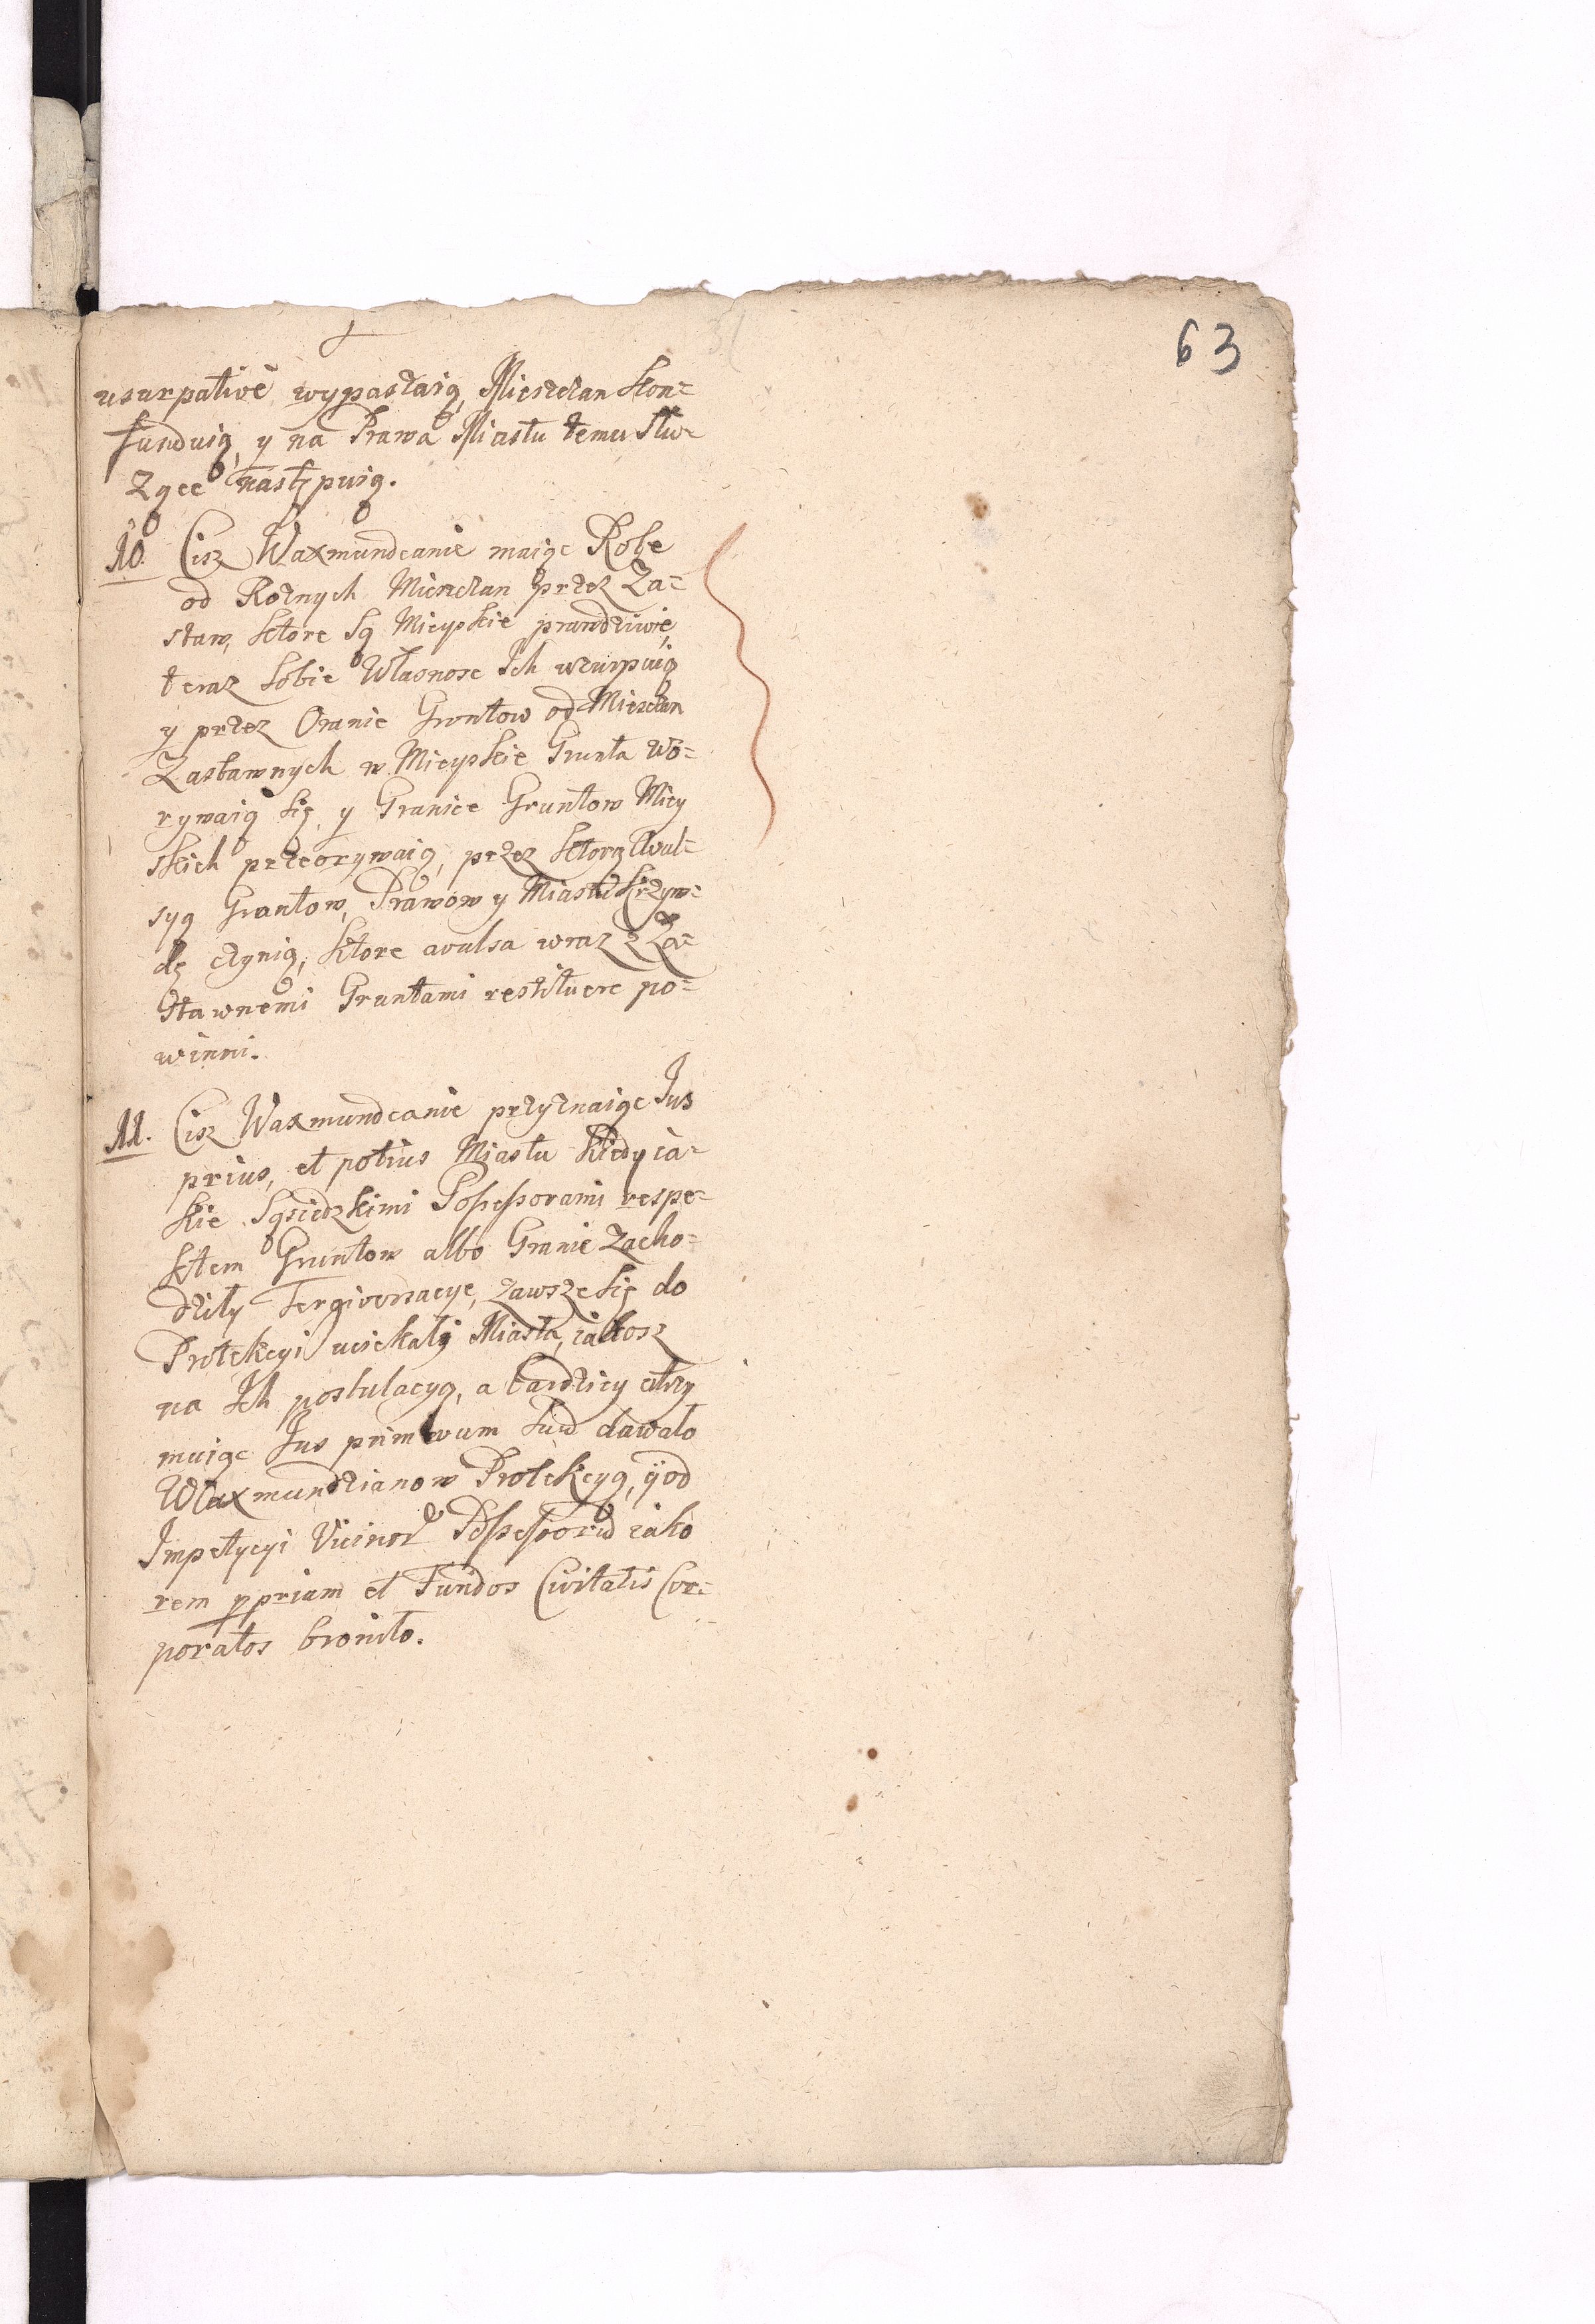 63
usurpativè wypasaią, Miesczan kon=
funduią, y na Prawa Miastu temu słu=
żące następuią.
10. Cisz Waxmundcanie maiąc Rolę
od Rożnych Miesczan przez Za=
staw, ktore są Mieyskie prawdziwie,
teraz sobie Własnosc Ich uzurpuią
y przez Oranie Gruntow od Miesczan
Zastawnych w Mieyskie Grunta wo=
rywaią się, y Granice Gruntow Miey
skich przeorywaią, przez ktorą Avul=
syą Gruntow, Prawow y Miastu krzyw=
dę czynią, ktore avulsa wraz z Za=
stawnemi Gruntami restituere po=
winni.
11. Cisz Waxmundcanie przyznaiąc Jus
prius, et potius Miastu kiedy ia=
kie Sąsiedzkimi Possessorami respe=
ktem Gruntow albo Granic zacho=
dziły Tergiversacye, zawsze się do
Protekcyi uciekały Miasta, iakosz
na Ich postulacyą, a bardziey utrzy
muiąc Jus primævum suū dawało
Waxmundzianow Protekcyą, ÿ od
Impetycyi Vicinor Possessorū iako
rem ppriam et Fundos Civitatis Cor=
poratos broniło.